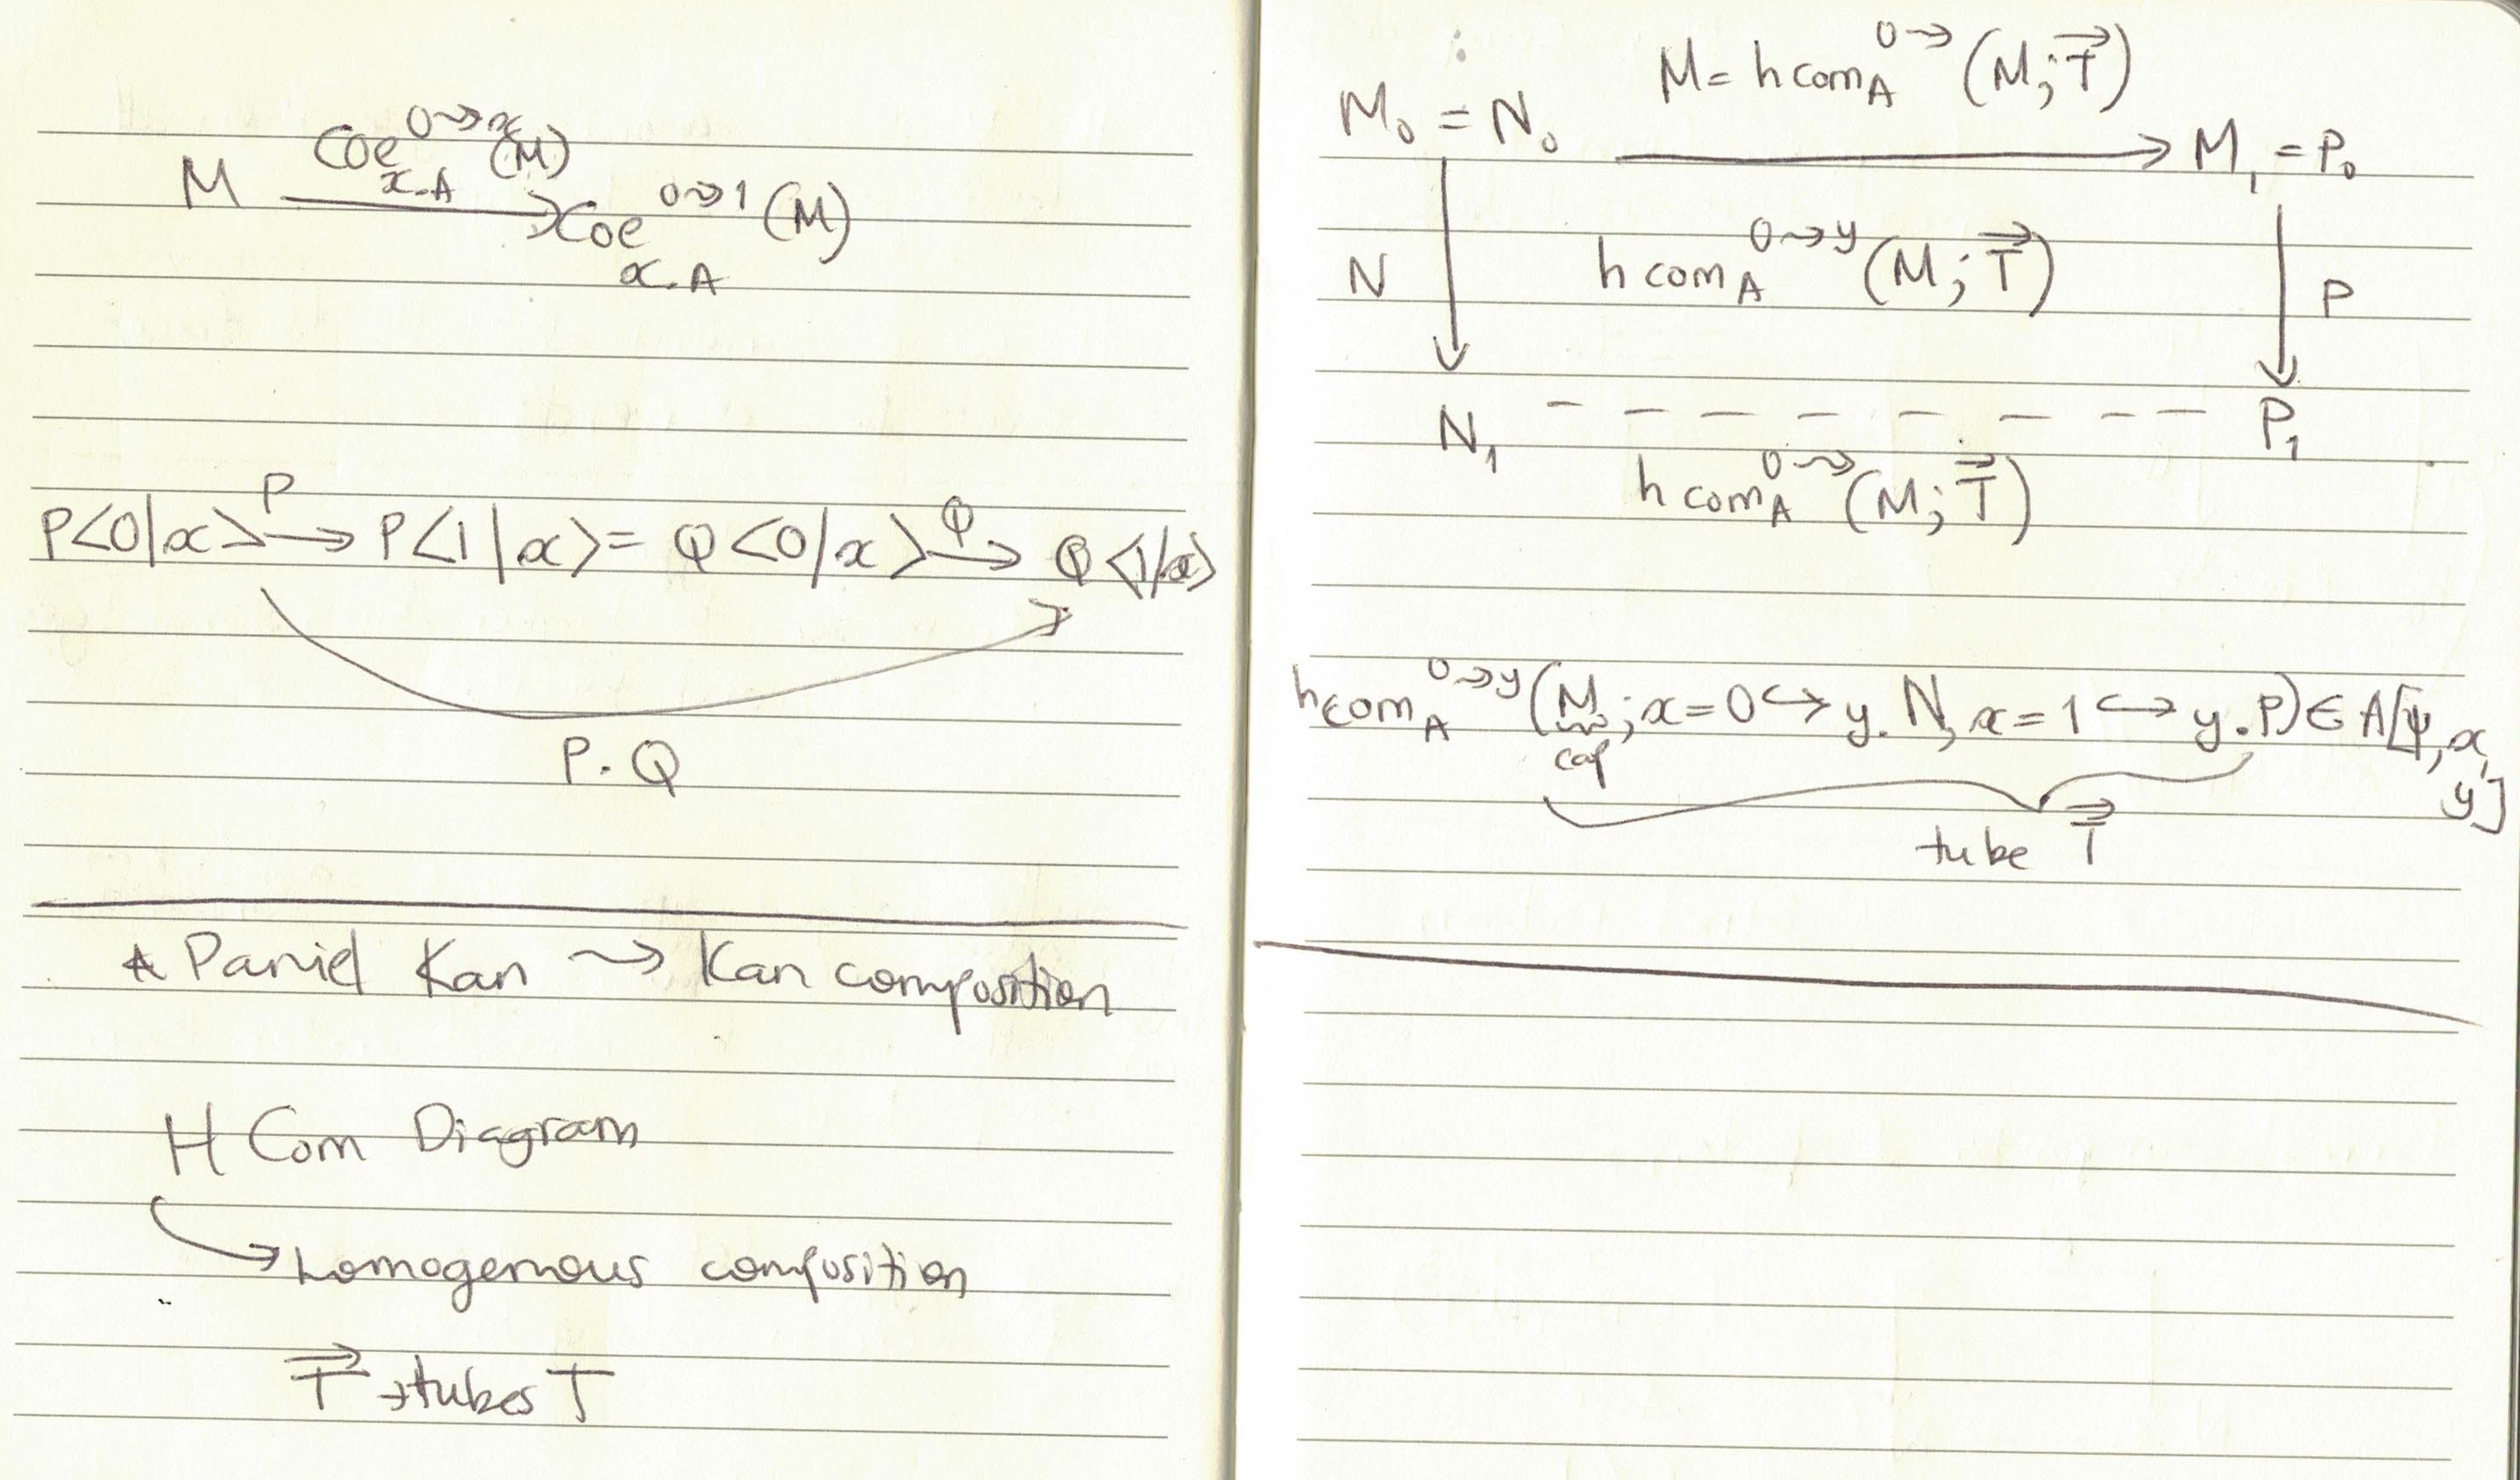 M —Coe_{x.A}^{0⇝x}(M)→ Coe_{x.A}^{0⇝1}(M)
P<0|x> —P→ P<1|x> = Q<0/x> —Q→ Q<1/x>
P.Q
* Daniel Kan ⇝ Kan composition
H Com Diagram
↳ homogenous composition
T⃗ → tubes T
M = hcom_A^{0⇝}(M; T⃗)
M₀ = N₀ ⟶ M₁ = P₀
N hcom_A^{0⇝y}(M; T⃗) P
N₁ - - - - - - - - P₁
hcom_A^{0⇝}(M; T⃗)
hcom_A^{0⇝y}(M; x=0 ↪ y.N, x=1 ↪ y.P) ∈ A[Ψ, x, y]
cap
tube T⃗